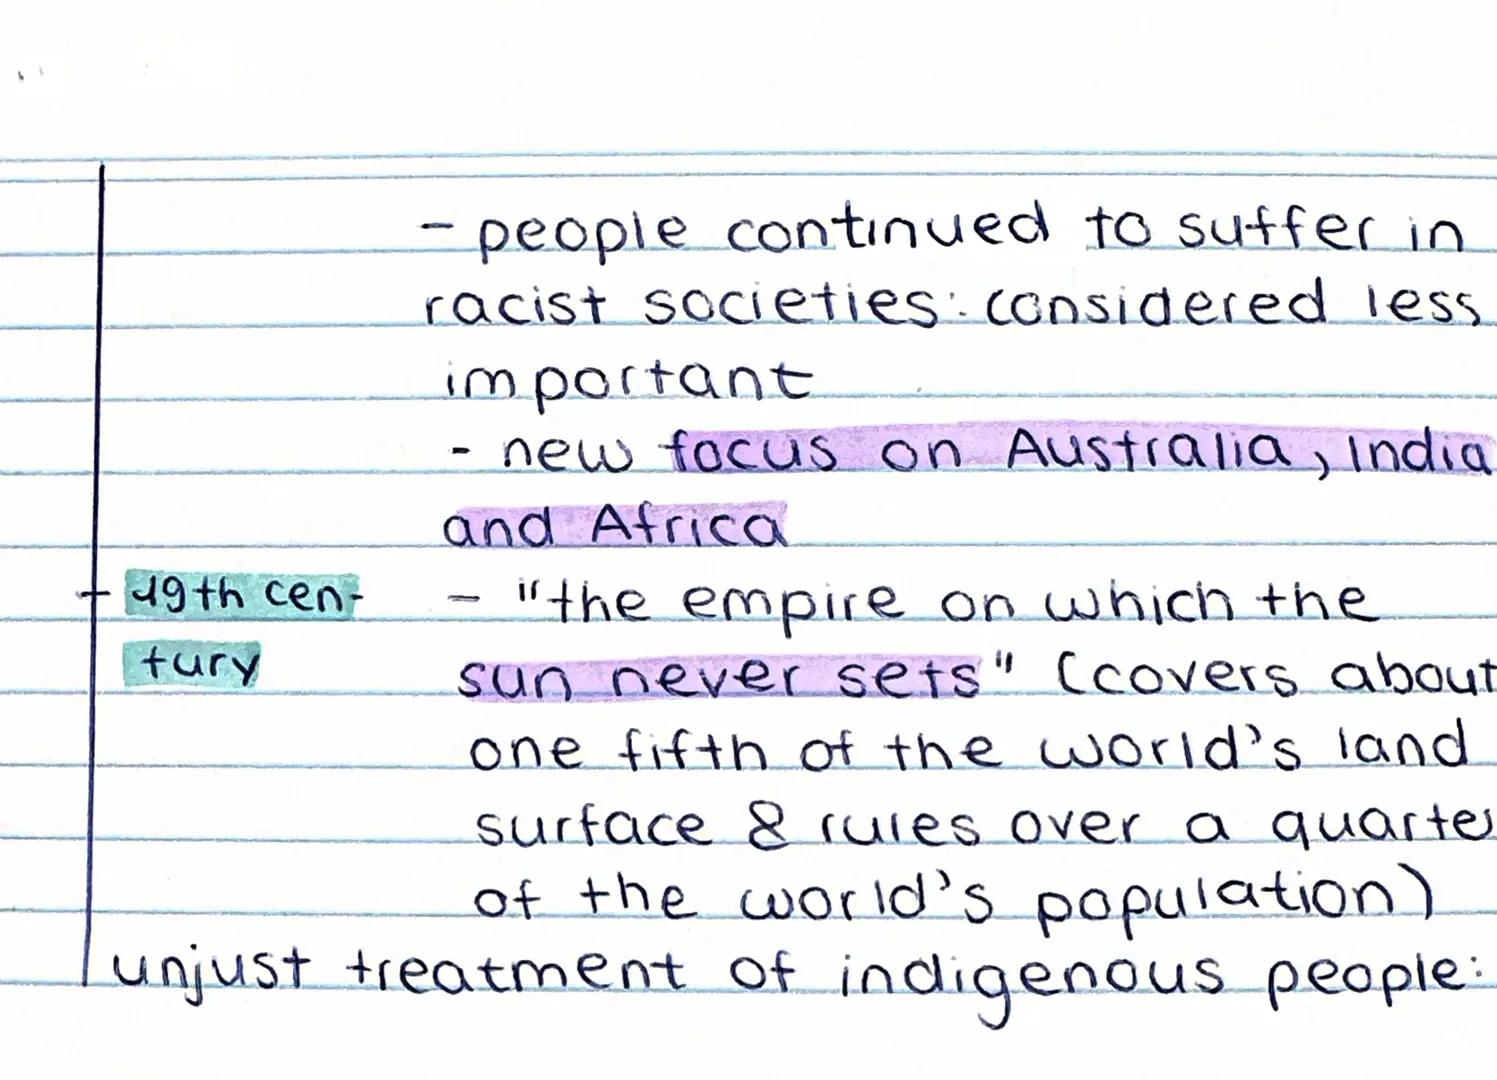 - people continued to suffer in
racist societies: considered less
important
- new focus on Australia, India
and Africa
19th cen- - "the empire on which the
tury sun never sets" (covers about
one fifth of the world's land
surface & rules over a quarter
of the world's population)
unjust treatment of indigenous people: